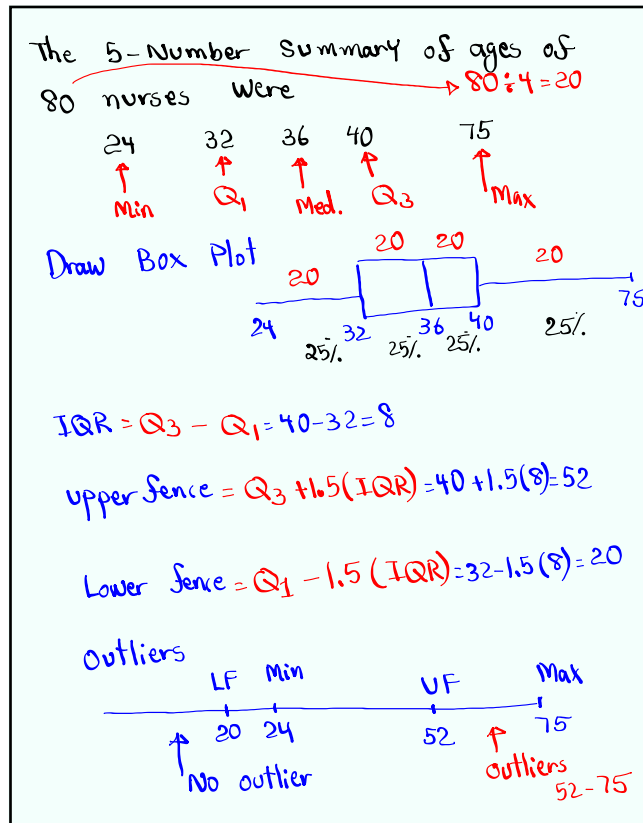 The 5-Number Summary of ages of
80 nurses were 80÷4=20
24 32 36 40 75
Min Q1 Med. Q3 Max
Draw Box Plot
20 20 20 20
24 32 36 40 75
25% 25% 25% 25%
IQR = Q3 - Q1 = 40-32 = 8
upper fence = Q3 +1.5(IQR) = 40 +1.5(8) = 52
Lower fence = Q1 -1.5(IQR) = 32-1.5(8) = 20
outliers
LF Min UF Max
20 24 52 75
No outlier outliers
52-75